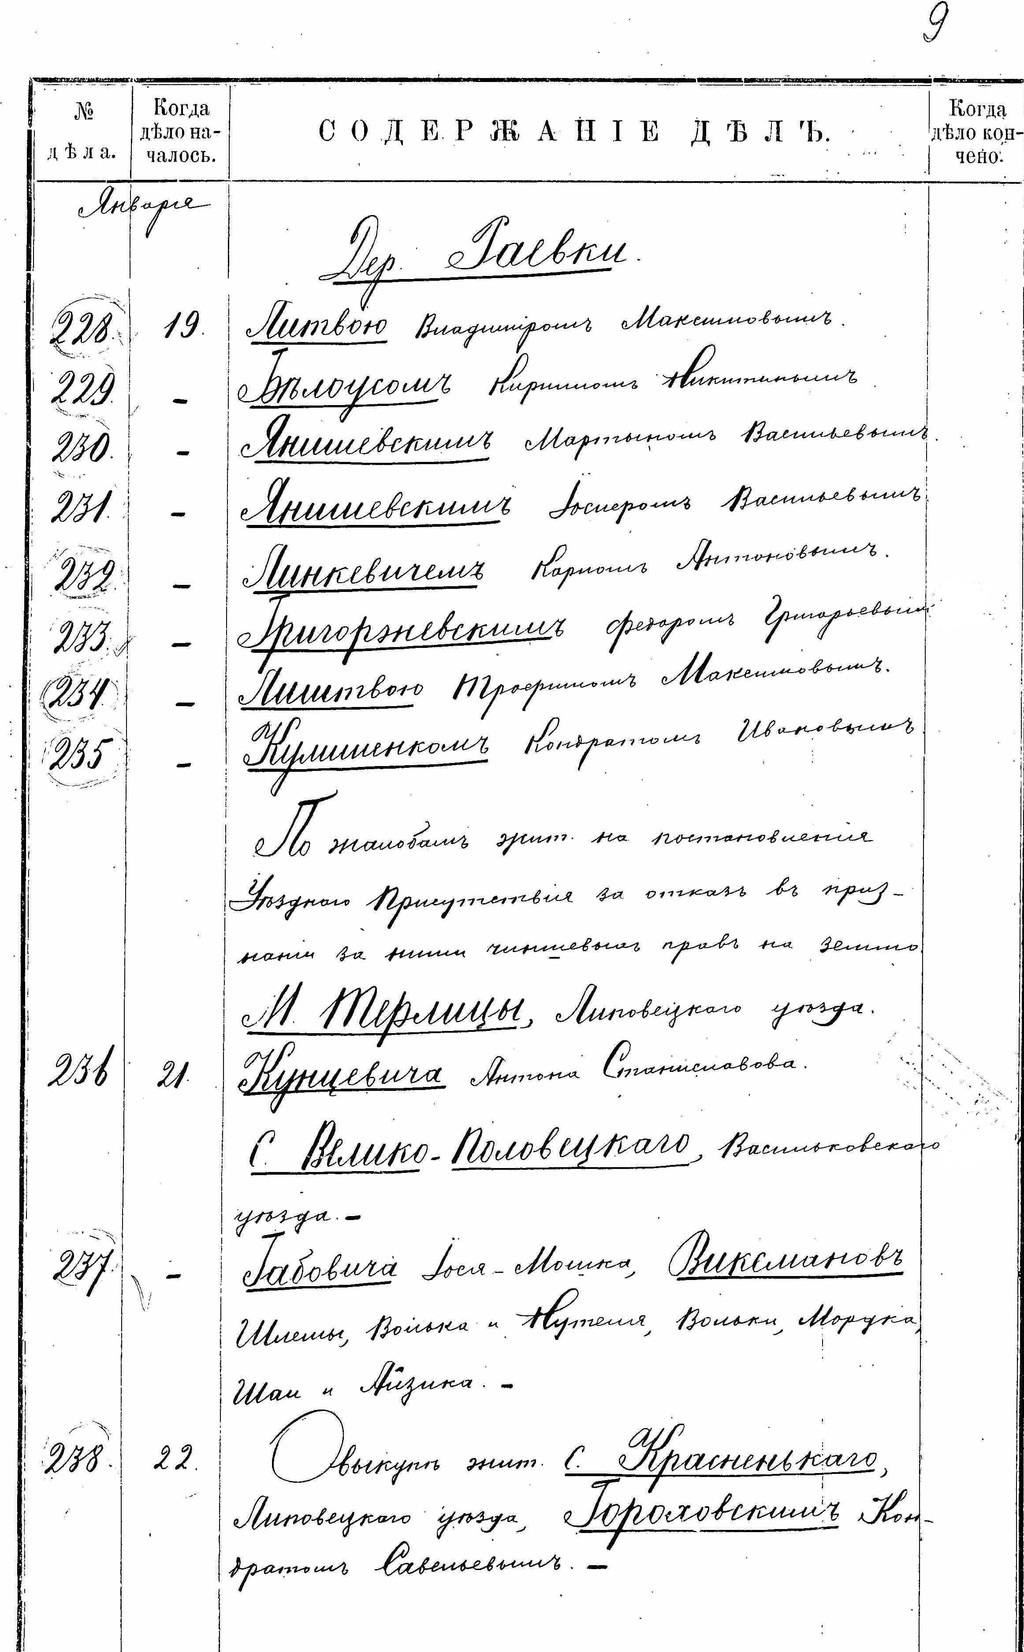 9
№ дѣла. Когда дѣло началось. СОДЕРЖАНІЕ ДѢЛЪ. Когда дѣло кончено.
Января
Дер. Раевки.
228. 19. Литвою Владиміромъ Максимовымъ.
229. – Бѣлоусомъ Кириломъ Никитинымъ
230. – Янишевскимъ Мартыномъ Васильевымъ.
231. – Янишевскимъ Іосифомъ Васильевымъ
232. – Линкевичемъ Карпомъ Антоновымъ.
233. – Григоржевскимъ Федоромъ Григорьевымъ
234. – Лиштвою Трофимомъ Максимовымъ.
235 – Кулишенкомъ Кондратомъ Ивановымъ
По жалобамъ жит. на постановленія
Уѣзднаго Присутствія за отказъ въ приз-
наніи за ними чиншевыхъ правъ на землю
М. Терлицы, Липовецкаго уѣзда.
236 21. Кунцевича Антона Станиславова.
С. Велико-Половецкаго, Васильковскаго
уѣзда. –
237. – Габовича Іося-Мошка, Виксмановъ
Шлемы, Волька и Нутеля, Вольки, Мордка,
Шаи и Айзика. –
238. 22. О выкупѣ жит. С. Красненькаго,
Липовецкаго уѣзда, Гороховскимъ Кон-
дратомъ Савельевымъ. –